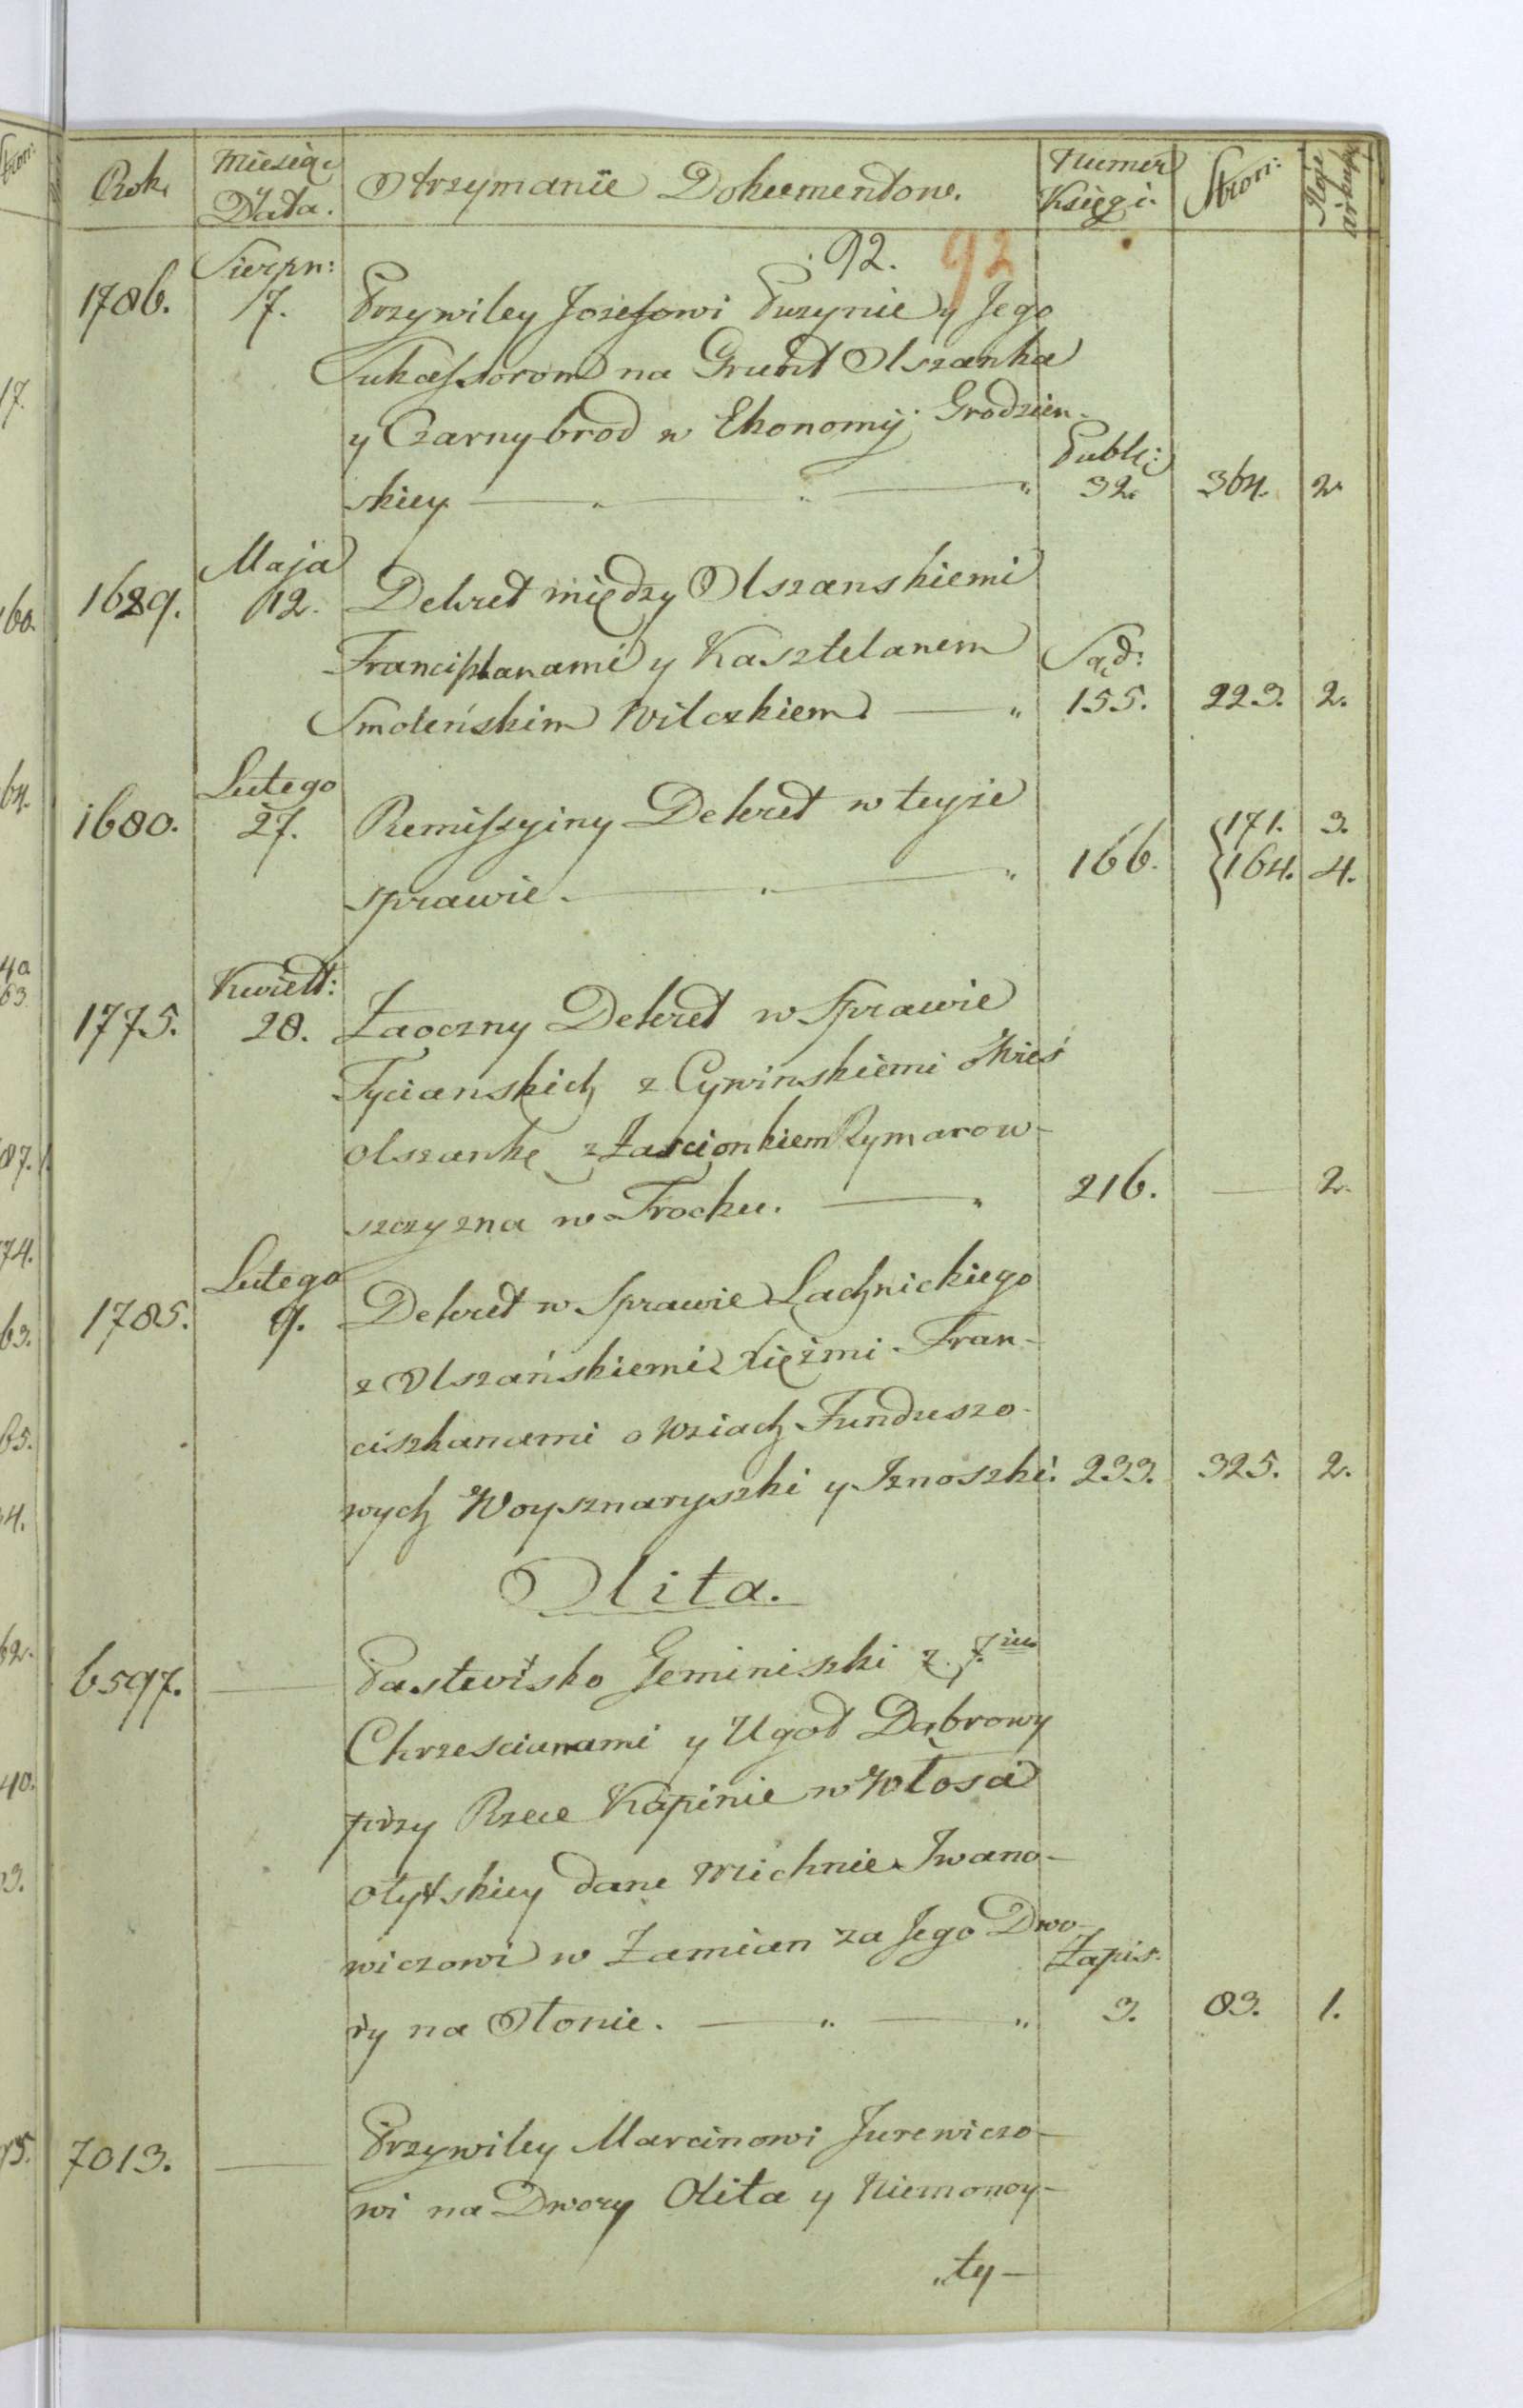 Rok
Miesiąc
y
Data.
Otrzymanie Dokumentow.
Numer
Księgi.
Stron:
92. 92
1786.
Sierpn:
7.
Przywiley Jozefowi Puzynie y Jego
Sukcessorom na Grunt Olszanka
y Czarny-brod w Ekonomij Grodzien-
skiey — „ — „ — „
Publ:
32. 364. 2.
1689.
Maja
12.
Dekret między Olszanskiemi
Franciszkanami y Kasztelanem
Smoleńskim Wilczkiem. — „
Sąd:
155. 223. 2.
1680.
Lutego
27.
Remissyiny Dekret w teyże
sprawie. — „ — „
166.
171. 3.
164. 4.
1775.
Kwiet:
28.
Zaoczny Dekret w Sprawie
Tycianskich z Cywinskiemi o Wieś
Olszankę z Zascionkiem Rymarow-
szczyzna w Trocku. — „
216. — 2.
1785.
Lutego
9.
Dekret w Sprawie Lachnickiego
z Olszańskiemi Xiężmi Fran-
ciszkanami o Wsiach Funduszo-
wych Woysznaryszki y Iznoszki.
233. 325. 2.
Olita.
6597. —
Pastwisko Geminiszki z 7.iu
Chrzescianami y Ugod Dąbrowy
przy Rzece Kapinie w Włosci
Olytskiey dane Michnie Iwano-
wiczowi w Zamian za Jego Dwo-
ry na Stonie. — „ — „
Zapis.
3. 83. 1.
7013. —
Przywiley Marcinowi Jurewiczo-
wi na Dwory Olita y Niemonoy-
„ty —